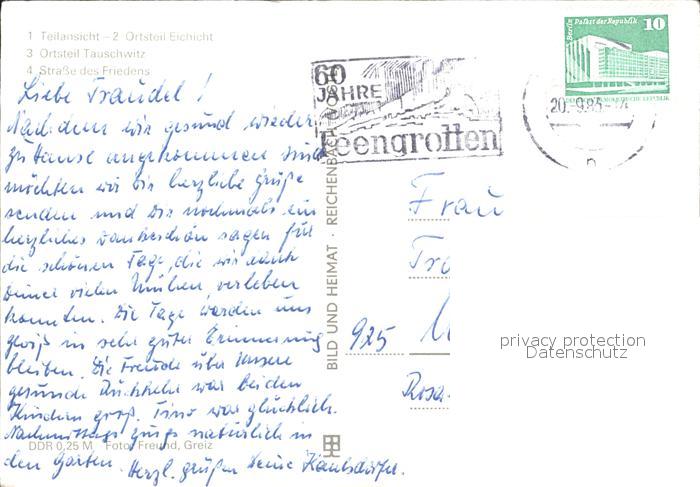 1 Teilansicht – 2 Ortsteil Eichicht
3 Ortsteil Tauschwitz
4 Straße des Friedens
Liebe Traudel!
Nachdem wir gesund wieder
zu Hause angekommen sind
möchten wir Dir herzliche Grüße
senden und Dir nochmals ein
herzliches Dankeschön sagen für
die schönen Tage, die wir dank
Deiner vielen Mühen verleben
konnten. Die Tage werden uns
gewiß in sehr guter Erinnerung
bleiben. Die Freude über unsere
gesunde Rückkehr war beiden
Kindern groß. Timo war glücklich.
Nachmittags ging's natürlich in
den Garten. Herzl. grüßen Deine
DDR 0,25 M Foto: Freund, Greiz
BILD UND HEIMAT · REICHENBACH
60
JAHRE
Feengrotten
20.-9.86
Berlin Palast der Republik 10
DEUTSCHE DEMOKRATISCHE REPUBLIK
Frau
925
Rosa
privacy protection
Datenschutz